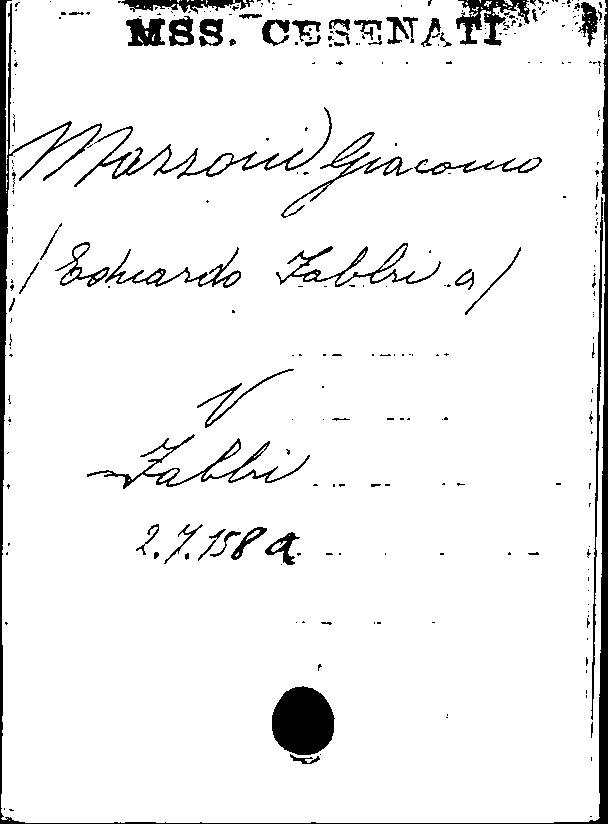 MSS. CESENATI
Mazzoni Giacomo
/ Eduardo Fabbri a /
V
Fabbri
2.7.158 a